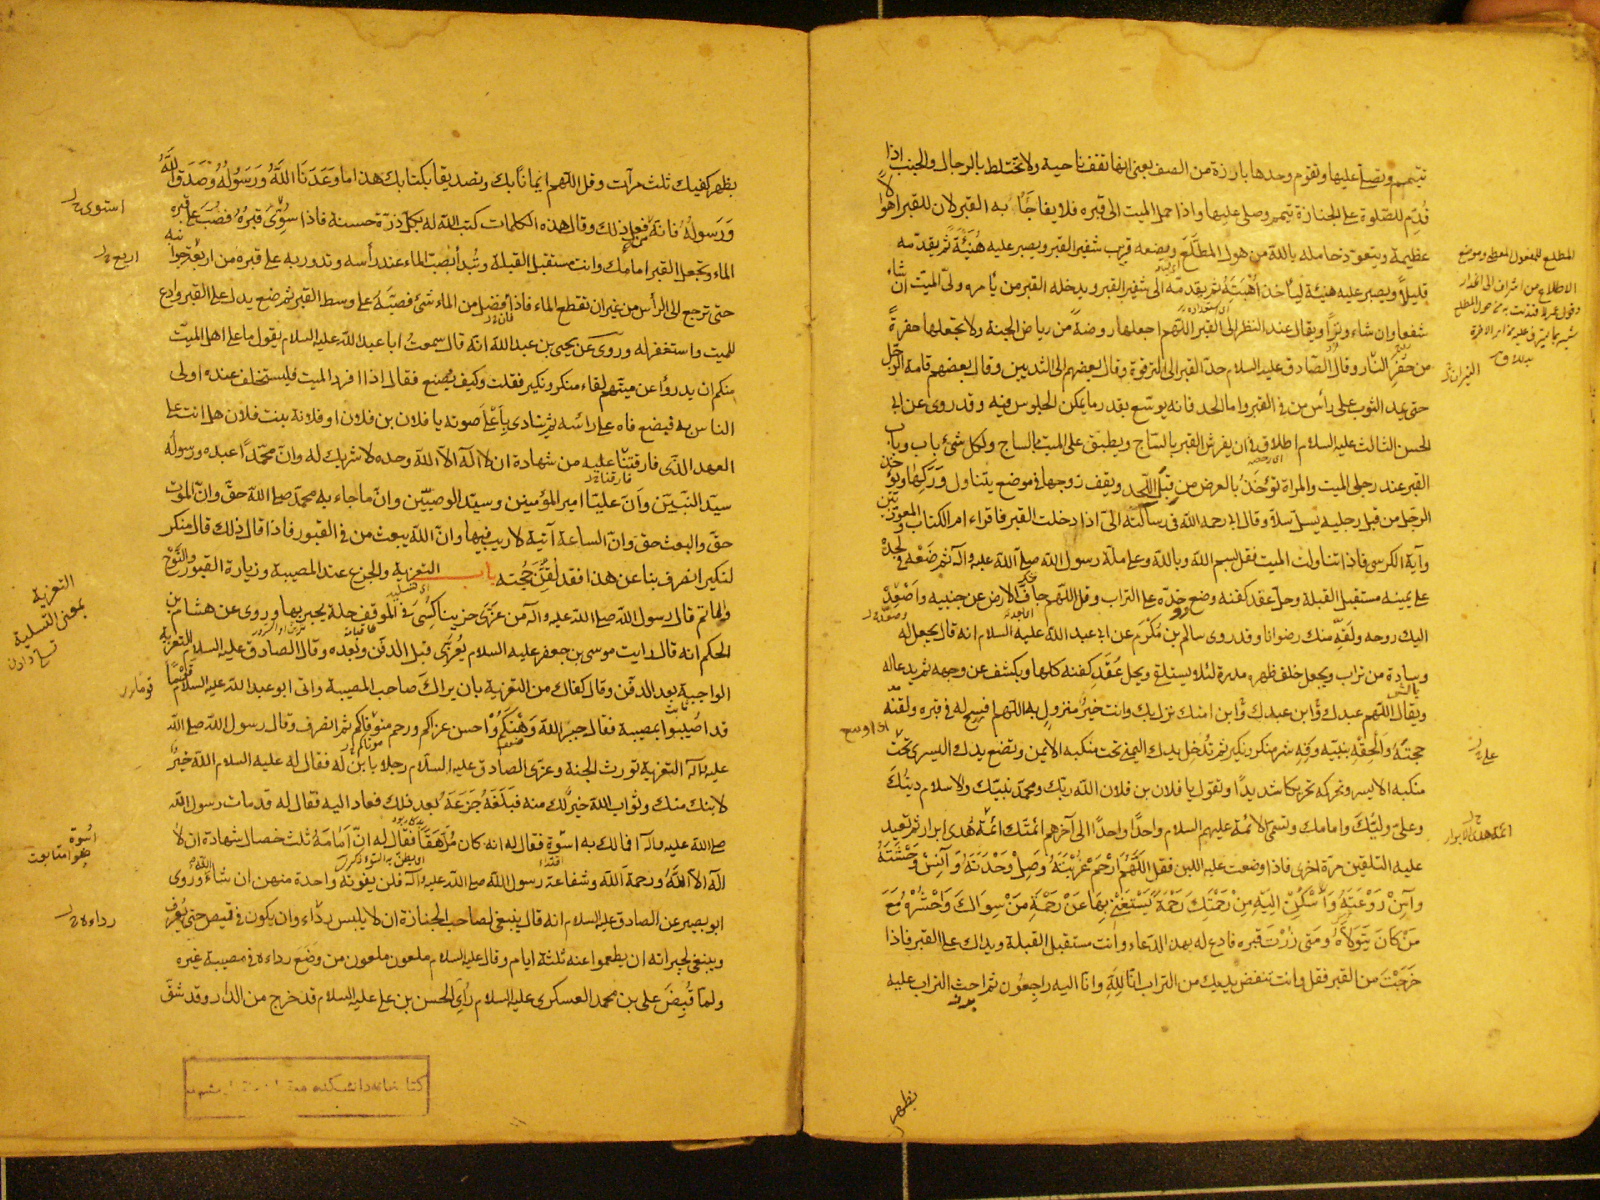 تتيمم وتصلي عليها وتقوم وحدها بارزة من الصف يعني انها تقف ناحية ولا تختلط بالرجال والجنب اذا
قدم للصلوة على الجنازة تيمم وصلى عليها واذا حمل الميت الى قبره فلا يفاجأ به القبر لان للقبر اهوالا
عظيمة ويتعوذ حامله بالله من هول المطلع ويضعه قرب شفير القبر ويصبر عليه هنيئة ثم يقدمه
قليلا ويصبر عليه هنيئة ليأخذ اهبته ثم يقدمه الى شفير القبر ويدخله القبر من يأمره ولي الميت ان شاء
شفعا وان شاء وترا ويقال عند النظر الى القبر اللهم اجعلها روضة من رياض الجنة ولا تجعلها حفرة
من حفر النار وقال الصادق عليه السلام حد القبر الى الترقوة وقال بعضهم الى الثديين وقال بعضهم قامة الرجل
حتى يمد الثوب على رأس من في القبر واما اللحد فانه يوسع بقدر ما يمكن الجلوس فيه وقد روي عن ابي
الحسن الثالث عليه السلام اطلاق في ان يفرش القبر بالساج ويطبق على الميت الساج ولكل شئ باب وباب
القبر عند رجلي الميت والمراة تؤخذ بالعرض من قبل اللحد ويقف زوجها في موضع يتناول وركها ويؤخذ
الرجل من قبل رجليه يسل سلا وقال ابي رحمه الله في رسالته الي اذا دخلت القبر فاقراء ام الكتاب والمعوذتين
وآية الكرسي فاذا تناولت الميت فقل بسم الله وبالله وعلى ملة رسول الله صلى الله عليه وآله ثم ضعه في لحده
على يمينه مستقبل القبلة وحل عقد كفنه وضع خده على التراب وقل اللهم جاف الارض عن جنبيه واصعد
اليك روحه ولقه منك رضوانا وقد روى سالم بن مكرم عن ابي عبد الله عليه السلام انه قال يجعل له
وسادة من تراب ويجعل خلف ظهره مدرة لئلا يستلقي ويحل عقد كفنه كلها ويكشف عن وجهه ثم يدعا له
ويقال اللهم عبدك وابن عبدك وابن امتك نزل بك وانت خير منزول به اللهم افسح له في قبره ولقنه
حجته والحقه بنبيه وقه شر منكر ونكير ثم تدخل يدك اليمنى تحت منكبه الايمن وتضع يدك اليسرى تحت
منكبه الايسر وتحركه تحريكا شديدا وتقول يا فلان بن فلان الله ربك ومحمد نبيك والاسلام دينك
وعلي وليك وامامك وتسمي الائمة عليهم السلام واحدا واحدا الى آخرهم ائمتك ائمة هدى ابرار ثم تعيد
عليه التلقين مرة اخرى فاذا وضعت عليه اللبن فقل اللهم ارحم غربته وصل وحدته وآنس وحشته
وآمن روعته واسكن اليه من رحمتك رحمة يستغني بها عن رحمة من سواك واحشره مع
من كان يتولاه ومتى زرت قبره فادع له بهذا الدعاء وانت مستقبل القبلة ويداك على القبر فاذا
خرجت من القبر فقل وانت تنفض يديك من التراب انا لله وانا اليه راجعون ثم احث التراب عليه
بظهر
المطلع للمفعول المعطى وموضع
الاطلاع من اشراف الى انحدار
على
ائمة هدى ابرار
بظهر كفيك ثلث مرات وقل اللهم ايمانا بك وتصديقا بكتابك هذا ما وعدنا الله ورسوله وصدق الله
ورسوله فانه من فعل ذلك وقال هذه الكلمات كتب الله له بكل ذرة حسنة فاذا سوي قبره فصب على قبره
الماء وتجعل القبر امامك وانت مستقبل القبلة وتبدأ بصب الماء عند رأسه وتدور به على قبره من اربع جوانبه
حتى ترجع الى الرأس من غير ان تقطع الماء فاذا فضل من الماء شئ فصبه على وسط القبر ثم ضع يدك على القبر وادع
للميت واستغفر له وروي عن يحيى بن عبد الله انه قال سمعت ابا عبد الله عليه السلام يقول ما على اهل الميت
منكم ان يدرؤا عن ميتهم لقاء منكر ونكير فقلت وكيف يصنع فقال اذا افرد الميت فليستخلف عنده اولى
الناس به فيضع فاه على رأسه ثم ينادي بأعلى صوته يا فلان بن فلان او فلانة بنت فلان هل انت على
العهد الذي فارقتنا عليه من شهادة ان لا اله الا الله وحده لا شريك له وان محمدا عبده ورسوله
سيد النبيين وان عليا امير المؤمنين وسيد الوصيين وان ما جاء به محمد صلى الله حق وان الموت
حق والبعث حق وان الساعة آتية لا ريب فيها وان الله يبعث من في القبور فاذا قال ذلك قال منكر
لنكير انصرف بنا عن هذا فقد لقن حجته باب التعزية والجزع عند المصيبة وزيارة القبور والنوح
والماتم قال رسول الله صلى الله عليه وآله من عزى حزينا كسي في الموقف حلة يحبر بها وروي عن هشام بن
الحكم انه قال رايت موسى بن جعفر عليه السلام يعزي قبل الدفن وبعده وقال الصادق عليه السلام التعزية
الواجبة بعد الدفن وقال كفاك من التعزية بان يراك صاحب المصيبة واتى ابو عبد الله عليه السلام قوما
قد اصيبوا بمصيبة فقال جبر الله وهنكم واحسن عزاكم ورحم متوفاكم ثم انصرف وقال رسول الله صلى الله
عليه وآله التعزية تورث الجنة وعزى الصادق عليه السلام رجلا بابن له فقال له عليه السلام الله خير
لابنك منك وثواب الله خير لك منه فبلغه جزعه بعد ذلك فعاد اليه فقال له قد مات رسول الله
صلى الله عليه وآله افما لك به اسوة فقال له انه كان مرهقا فقال له ان امامه ثلث خصال شهادة ان لا
اله الا الله ورحمة الله وشفاعة رسول الله صلى الله عليه وآله فلن يفوته واحدة منهن ان شاء الله وروى
ابو بصير عن الصادق عليه السلام انه قال ينبغي لصاحب الجنازة ان لا يلبس رداء وان يكون في قميص حتى يعرف
وينبغي لجيرانه ان يطعموا عنه ثلثة ايام وقال عليه السلام ملعون ملعون من وضع رداءه في مصيبة غيره
ولما قبض علي بن محمد العسكري عليه السلام رأي الحسن بن علي عليه السلام قد خرج من الدار وقد شق
استوى
اربع
التعزية
بمعنى التسلية
اسوة
رداءه
كتابخانه دانشكده